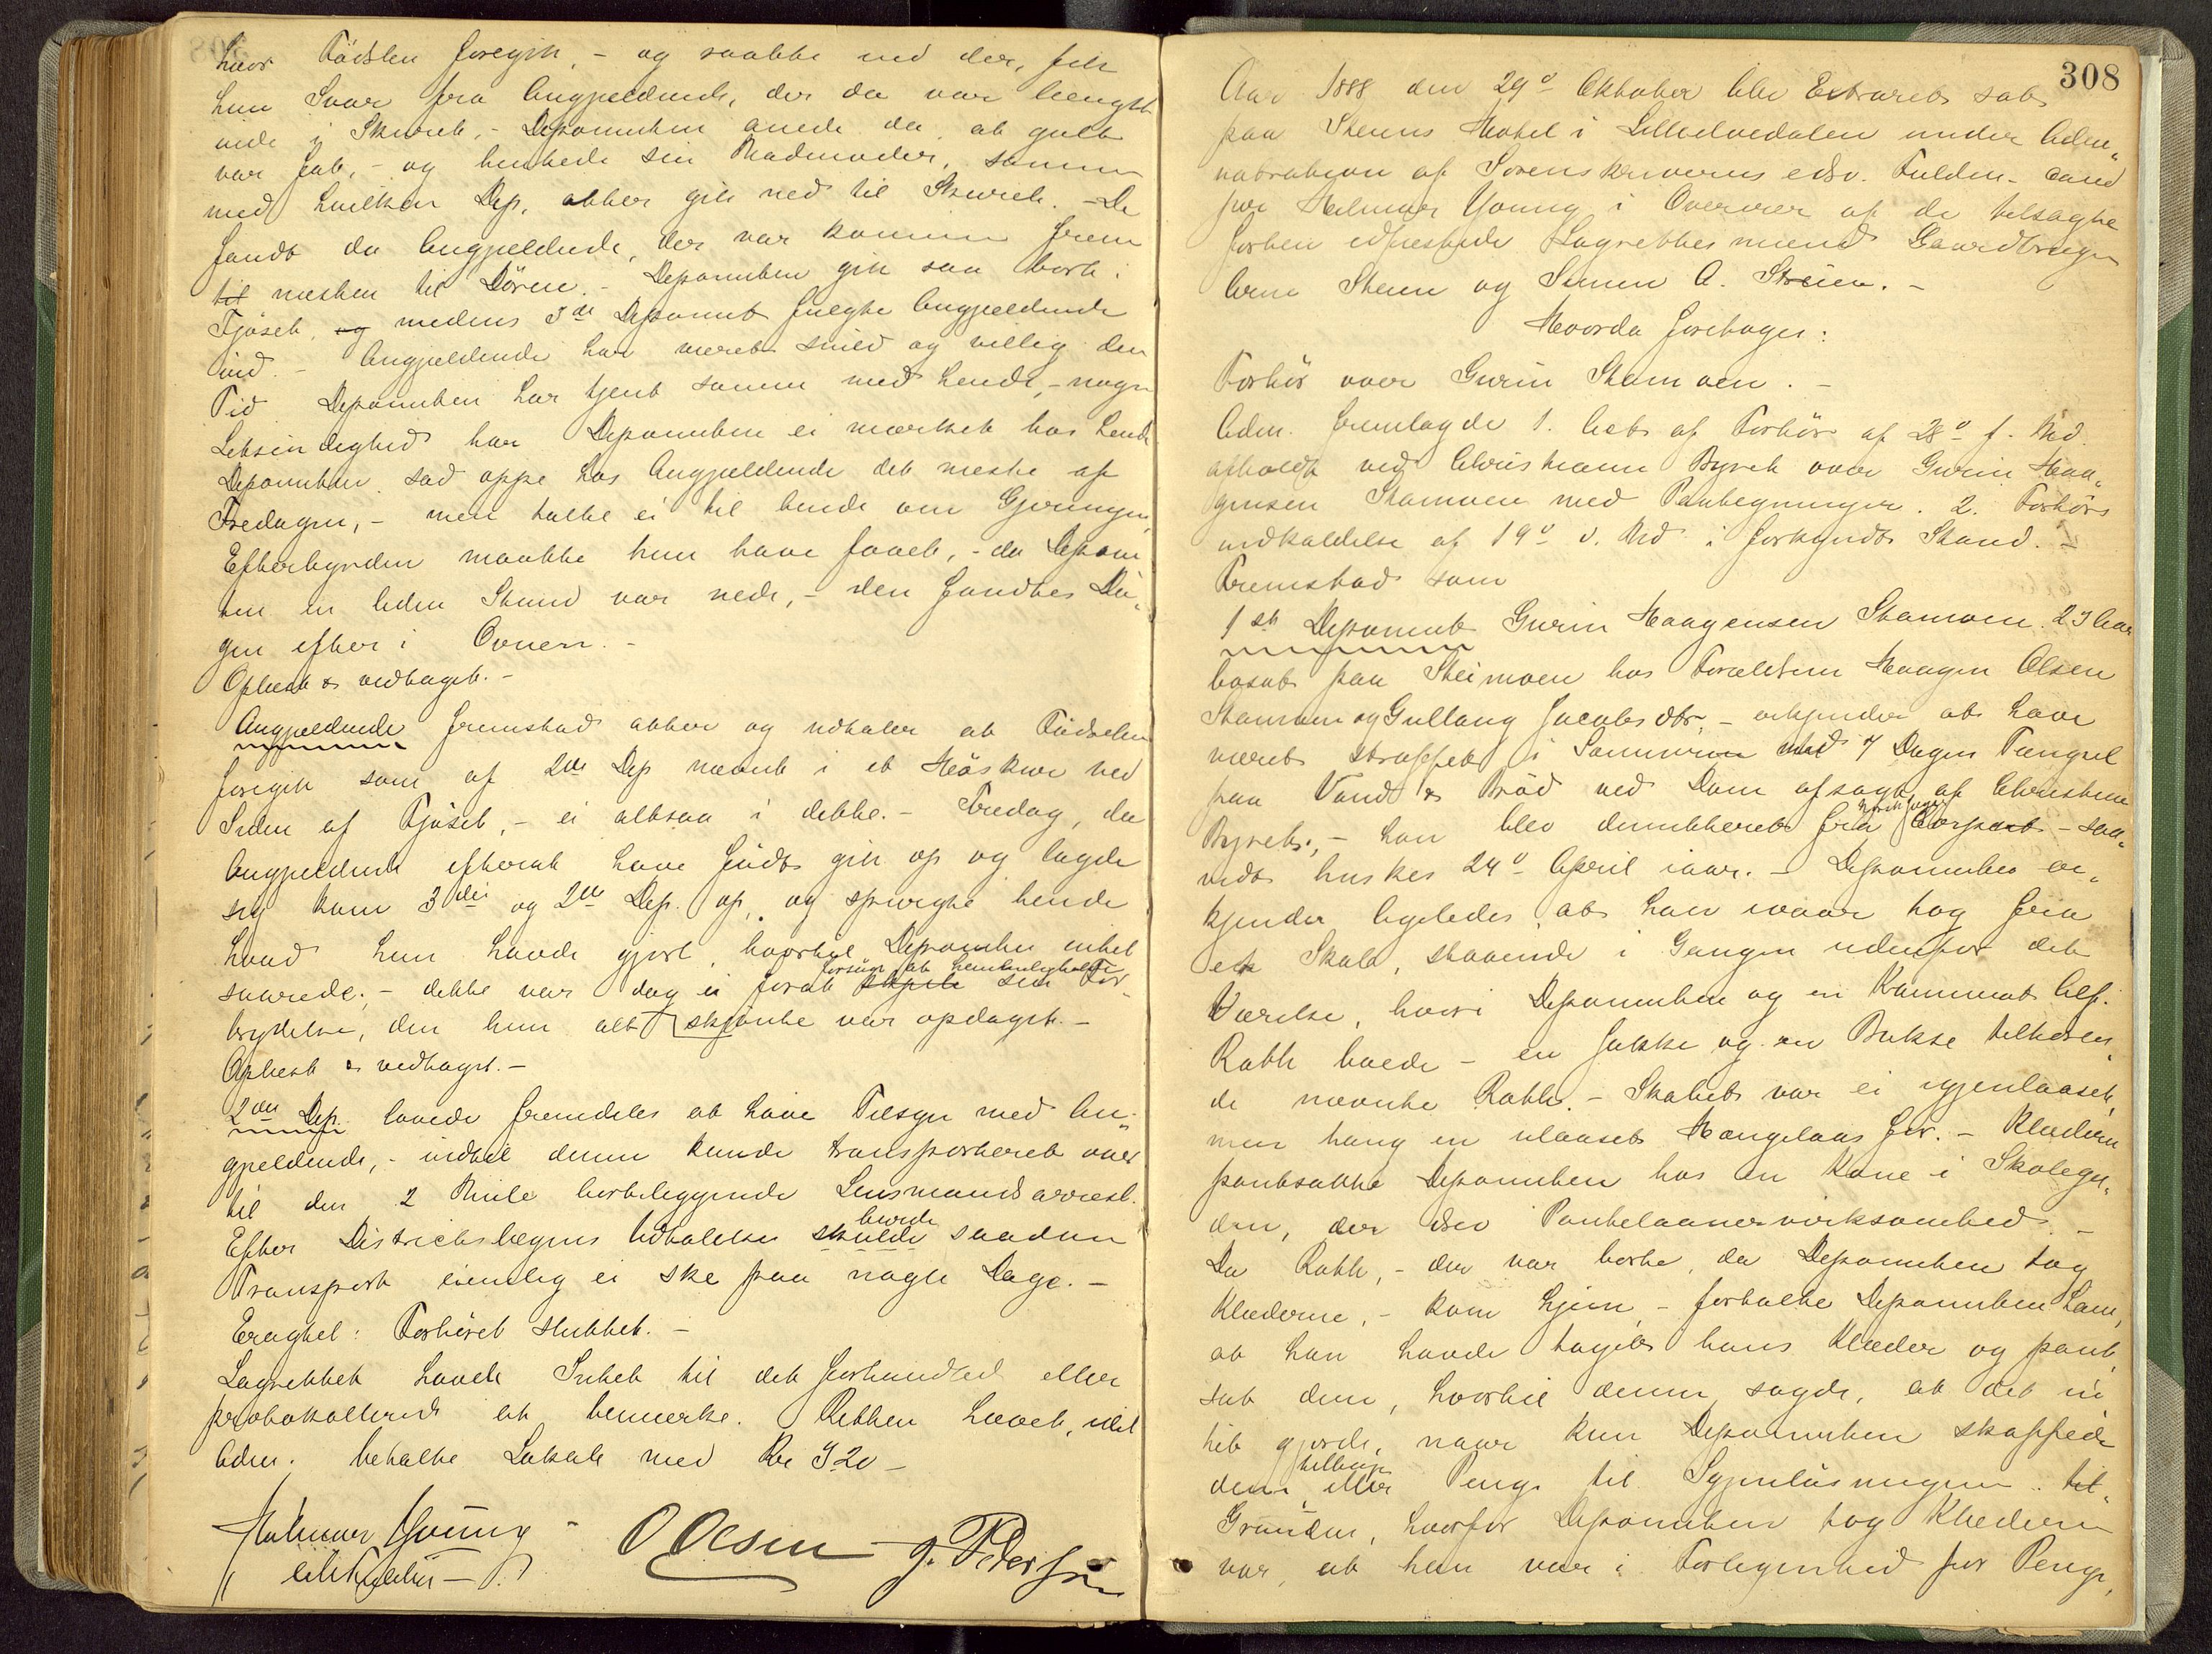 hvor Födslen foregik, - og raabte ind der, fik
hun Svar fra Angjældende, der da var længst
inde i Skuret. - Deponenten anede da, at galt
var fat, - og hentede sin Madmoder, sammen
med hvilken Dep. atter gik ned til Skuret. - De
fandt da Angjældende, der var kommen frem
til næsten til Dören. - Deponenten gik saa bort i
Fjöset, og medens 3die Deponent fulgte Angjældende
ind. - Angjældende har været snild og villig den
Tid Deponenten har tjent sammen med hende, - nogen
Letsindighed har Deponenten ei mærket hos hende
Deponenten sad oppe hos Angjældende det meste af
Fredagen, - men talte ei til hende om Gjerningen,
Efterbyrden maatte hun have faaet, - da Depon
ten en liden Stund var nede, - den fandtes Da-
gen efter i Ovnen. -
Oplæst & vedtaget. -
Angjældende fremstod atter og udtaler at Födselen
foregik som af 2den Dep nævnt i et Höskur ved
Siden af Fjöset, - ei altsaa i dette. - Fredag, da
Angjældende efterat have födt gik op og lagde
sig kom 3die og 2den Dep. op, og spurgte hende
hvad hun havde gjort, hvortil Deponenten intet
svarede, - dette var dog ei forat forsöge at hemmeligholde
skjule sin For-
brydelse, den hun alt skjönte var opdaget. -
Oplæst & vedtaget. -
2den Dep. lovede fremdeles at have Tilsyn med An-
gjældende, - indtil denne kunde transporteret over
til den 2 Mile bortliggende Lensmandsarrest.
Efter Districtslægens Udtalelse burde
skulde saadan
Transport eiendlig ei ske paa nogle Dage. -
Eragtet: Forhöret sluttet. -
Lagrettet havde Intet til det forhandled eller
protokollerede at bemærke. Retten hævet, idet
Adm. betalte Lokale med Kr 3 20 -
Halmar Young -
O Olsen - J. Pedersen
308
Aar 1888 den 29de Oktober blev Extraret sat
paa Steens Hotel i Lilleelvedalen under Adm-
nistration af Sorenskriverens edsv. Fuldm. cand
jur Halmar Young i Overvær af de tilsagte
forhen edfæstede Lagrettesmænd Gaardbruger
Arne Steen og Simen A. Streien. -
Hvorda foretoges:
Forhör over Gurin Stamoen. -
Adm. fremlagde 1. Act af Forhör af 28de f. Md.
afholdt ved Christiania Byret over Gurin Haa-
gensen Stamoen med Paategninger. 2. Forhörs
indkaldelse af 19de d. Md. i forkyndt Stand. -
Fremstod som
1ste Deponent Gurin Haagensen Stamoen. 23 Aar
bosat paa Steimoen hos Forældrene Haagen Olsen
Stamoen og Gullaug Jacobsdtr, - erkjender at have
været straffet i Sommer med 7 Dages Fængsel
paa Vand & Bröd ved Dom afsagt af Christiania
Byret, - han blev dimitteret fra Corpset - saa-
vidt huskes 24de April iaar. - Deponenten er-
kjender ligeledes at han iaar tog fra
et Skab, staaende i Gangen udenfor det
Værelse, hvori Deponenten og en Kammerat Alf.
Rath boede - en Jakke og en Bukse tilhören-
de nævnte Rath. - Skabet var ei igjenlaaset,
men hang en ulaaset Hængelaas for. - Klæderne
pantsatte Deponenten hos en Kone i Skolega-
den, der drev Pantelaanervirksomhed. -
Da Rath, - der var borte, da Deponenten tog
Klæderne, - kom hjem, - fortalte Deponenten ham,
at han havde taget hans Klæder og pant-
sat dem, hvortil denne sagde, at det in-
tet gjorde, naar kun Deponenten skaffede
dem tilbage
eller Penge til Igjenlösningen. til
Grunden, hvorfor Deponenten tog Klæderne
var, at han var i Forlegenhed for Penge,